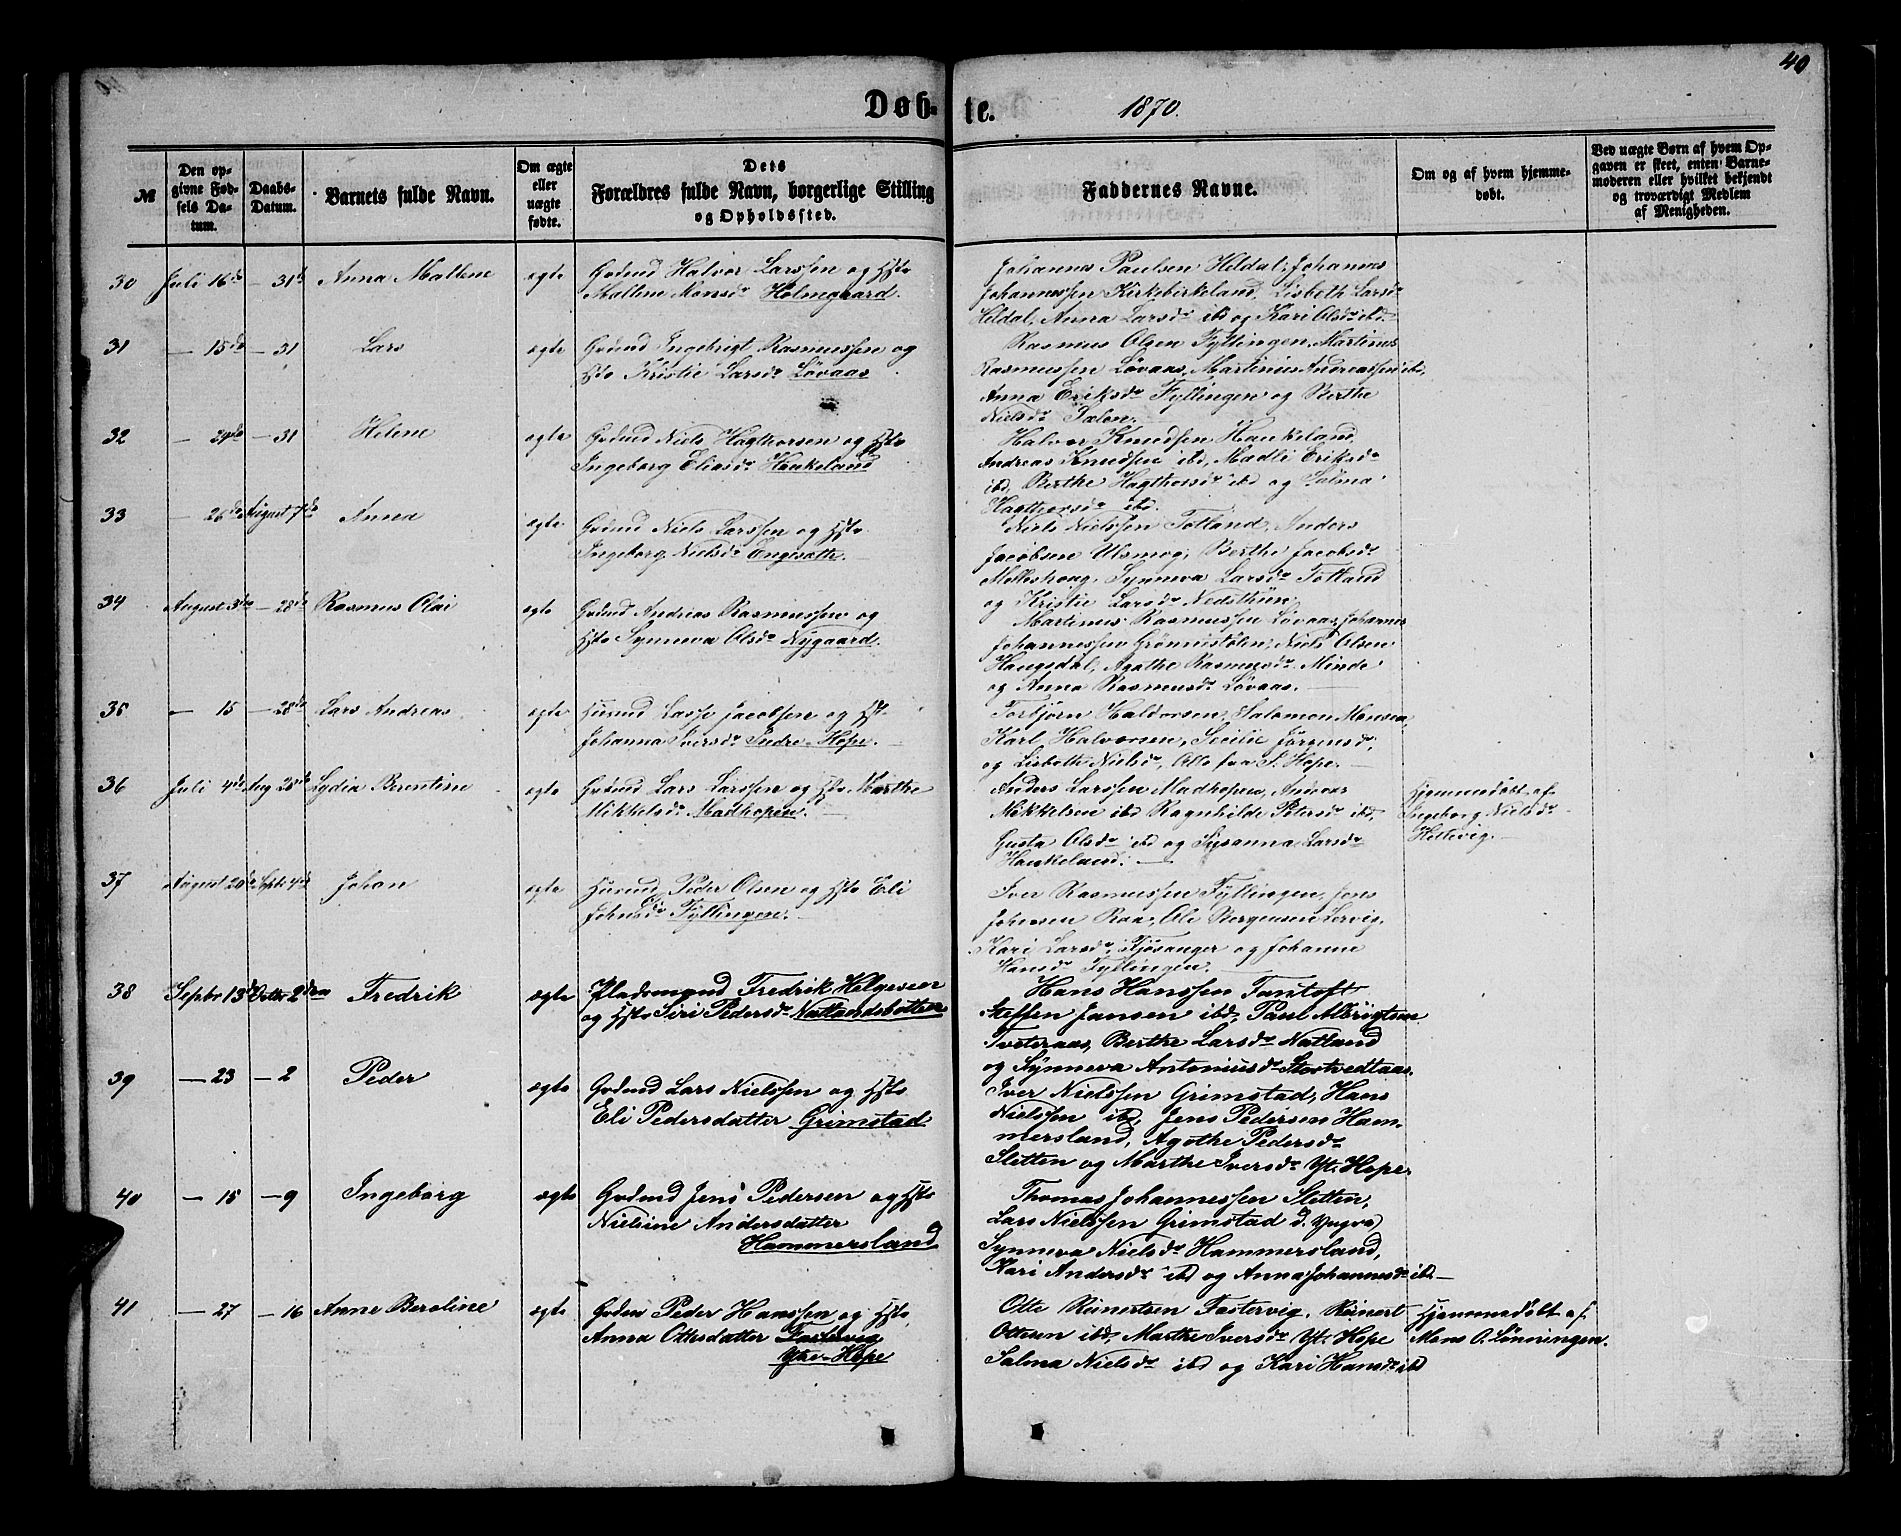 40
Døb- te. 1870.
№
Den opgivne Fødsels Datum.
Daabs-Datum.
Barnets fulde Navn.
Om ægte eller uægte fødte.
Dets Forældres fulde Navn, borgerlige Stilling og Opholdssted.
Faddernes Navne.
Om og af hvem hjemmedøbt.
Ved uægte Børn af hvem Opgaven er skeet, enten Barnemoderen eller hvilket bekjendt og troværdigt Medlem af Menigheden.
30 Juli 16de – 31te Anna Mallene ægte Grdmd Halvor Larssen og Hst
Mallene Monsdr Holmegaard.
Johannes Paulsen Heldal, Johannes
Johannessen Kirkebirkeland, Lisbeth Larsdr
Heldal, Anna Larsdr ibd og Kari Olsdr ibd
31 – 15de – 31 Lars ægte Grdmd Ingebrigt Rasmussen og
Hst Kristie Larsdr Løvaas
Rasmus Olsen Fyllingen, Martinus
Rasmussen Løvaas, Martinius Andreassen ibd,
Anna Eriksdr Fyllingen og Berthe
Nielsdr
32 – 29de – 31 Helene ægte Grdmd Niels Hagthorsen og Hst
Ingeborg Eliasdr Haukeland
Halvor Knudsen Haukeland,
Andreas Knudsen ibd, Madli Eriksdr
ibd, Berthe Hagthorsdr ibd og Salma
Hagthorsdr ibd.
33 – 26de August 7de Anna ægte Grdmd Niels Larssen og Hst
Ingeborg Nielsdr Engesætte.
Niels Nielssen Totland, Anders
Jacobsen Ulsmog, Berthe Jacobsdr
Mølleshoug, Synneva Larsdr Totland
og Kristie Larsdr Nedsthun,
34 August 3die – 28de Rasmus Olai ægte Grdmd Andreas Rasmussen og
Hst Synneva Olsdr Nygaard.
Martinus Rasmussen Løvaas, Johannes
Johannessen Grønnestølen, Niels Olsen
Haugsdal, Agathe Rasmusdr Minde
og Anna Rasmusdr Løvaas.
35 – 15 – 28de Lars Andreas ægte Husmd Lasse Jacobsen og Hst
Johanna Iversdr Indre-Hope.
Torbjørn Haldorsen, Salomon Monsen,
Karl Halvorsen, Secilie Jørgensdr,
og Lisbeth Nielsdr, Alle fra I. Hope.
36 Juli 4de Aug 28de Lydia Berentine ægte Grdmd Lars Larssen og Hst Marthe
Mikkelsdr Madhopen.
Anders Larssen Madhopen, Andreas
Mikkelsen ibd Ragnhilde Petersdr ibd,
Gusta Olsdr ibd og Susanna Larsdr
Haukeland.
Hjemmedøbt af
Ingeborg Nielsdr
Hettevig.
37 August 20de Septb 4de Johan ægte Husmd Peder Olsen og Hst Eli
Johnsdr Fyllingen.
Iver Rasmussen Fyllingen, Jens
Johnsen Raa, Ole Børgensen Lervig,
Kari Larsdr Fjøsanger og Johanne
Hansdr Fyllingen.
38 Septbr 13de Octbr 2den Fredrik ægte Pladsmand Fredrik Helgesen
og Hst Siri Pedersdr Natlandsbotten
Hans Hanssen Fantoft
Steffen Jansen ibd, Paul Albrigtsen
Tveteraas, Berthe Larsdr Natland
og Synneva Antoniusdr Storetvedtaas.
39 – 23 – 2 Peder ægte Grdmd Lars Nielssen og Hst
Eli Pedersdatter Grimstad
Iver Nielssen Grimstad, Hans
Nielssen ibd, Jens Pedersen Ham-
mersland, Agathe Pedersdr
Sletten og Marthe Iversdr Yt. Hope.
40 – 15 – 9 Ingeborg ægte Grdmd Jens Pedersen og Hst
Nielsine Andersdatter
Hammersland
Thomas Johannessen Sletten,
Lars Nielssen Grimstad d. Yngre,
Synneva Nielsdr Hammersland,
Kari Andersdr ibd og Anna Johannesdr ibd –
41 – 27 – 16 Anne Beroline ægte Grdm Peder Hanssen og Hst
Anna Ottesdatter Fastervig
Ytre-Hope
Otte Reinertsen Fastervig, Reinert
Ottesen ibd, Marthe Iversdr Yt. Hope
Salma Nielsdr ibd og Kari Hansdr ibd
Hjemmedøbt af
Mons O. Lønningen.